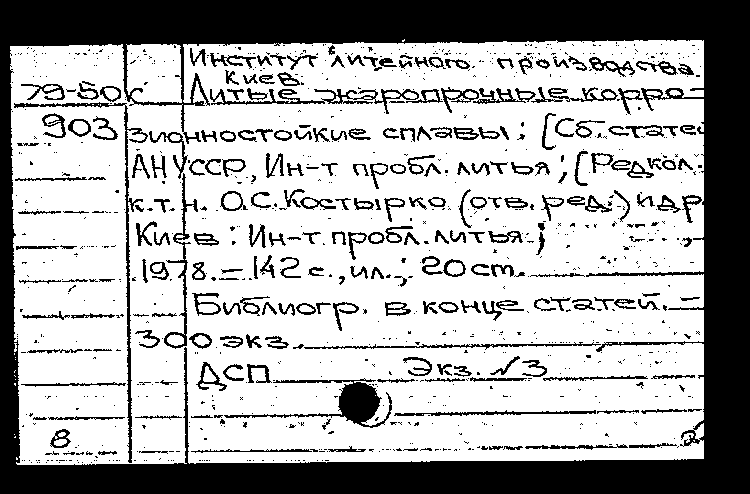 Институт литейного производства
Киев
79-50к Литые жаропрочные корро-
903 зионностойкие сплавы: [Сб. статей
АН УССР, Ин-т пробл. литья; [Редкол.
к.т.н. О.С. Костырко (отв. ред.) и др.
Киев: Ин-т пробл. литья;
1978. – 142 с., ил.; 20 ст.
Библиогр. в конце статей. –
300 экз.
ДСП Экз. №3
8 2